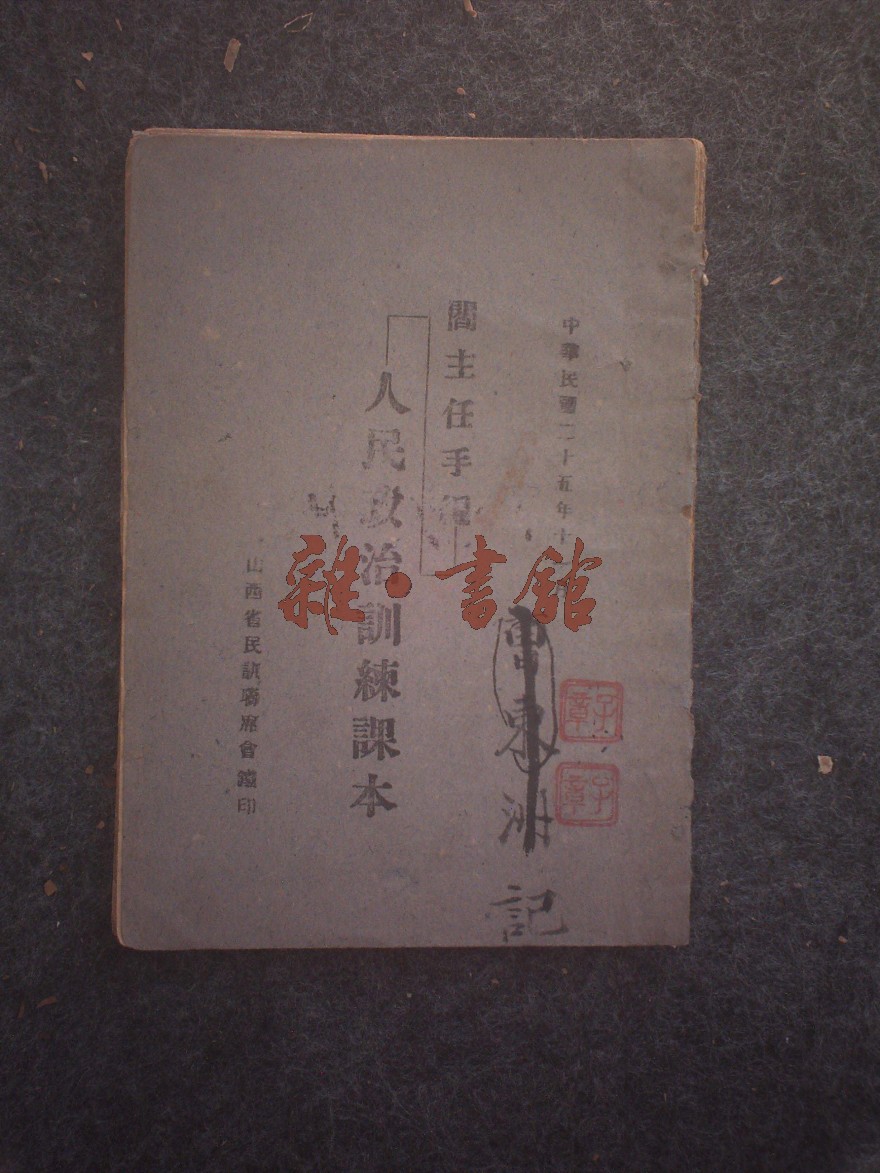 中華民國二十五年十
閻主任手
人民政治訓練課本
東
記
山西省民訓聯席會 印
雜·書館